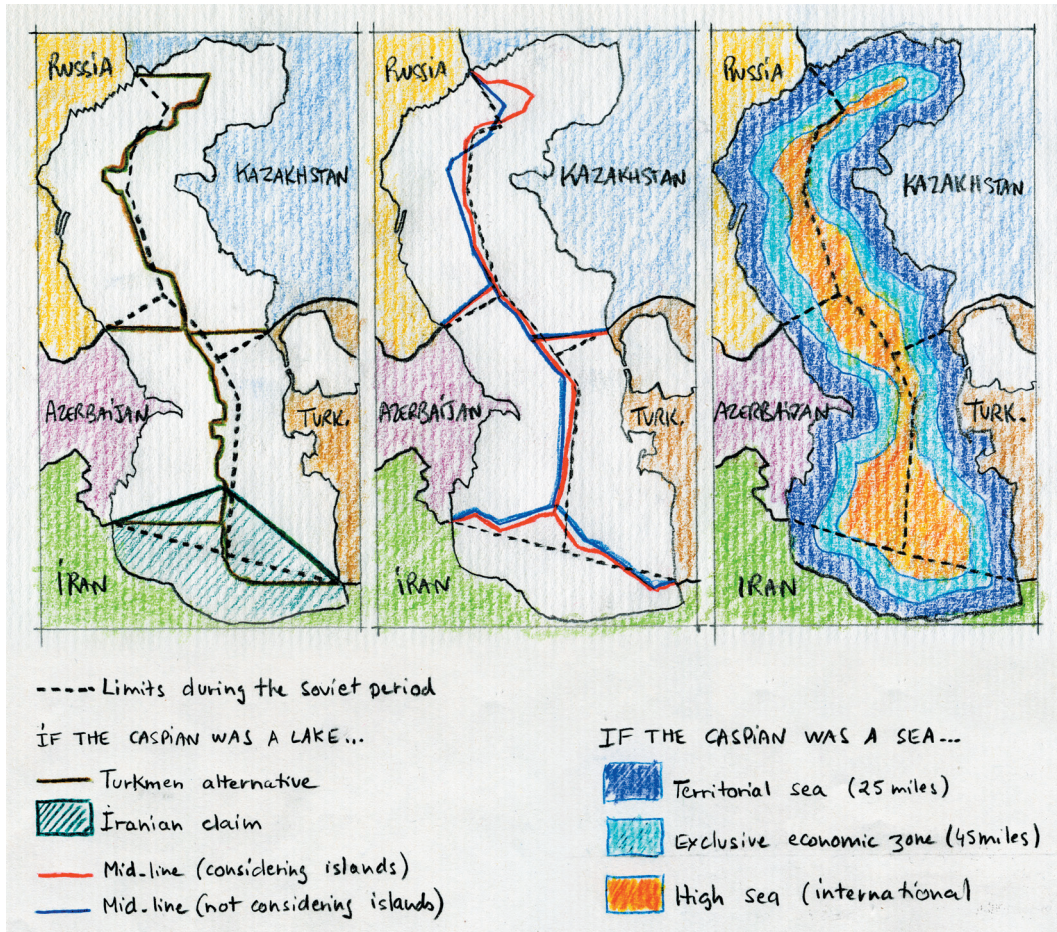 RUSSIA
KAZAKHSTAN
AZERBAIJAN
TURK.
İRAN
RUSSIA
KAZAKHSTAN
AZERBAIJAN
TURK.
İRAN
RUSSIA
KAZAKHSTAN
AZERBAIJAN
TURK.
IRAN
Limits during the soviet period
İF THE CASPIAN WAS A LAKE...
Turkmen alternative
İranian claim
Mid-line (considering islands)
Mid-line (not considering islands)
IF THE CASPIAN WAS A SEA...
Territorial sea (25 miles)
Exclusive economic zone (45miles)
High sea (international